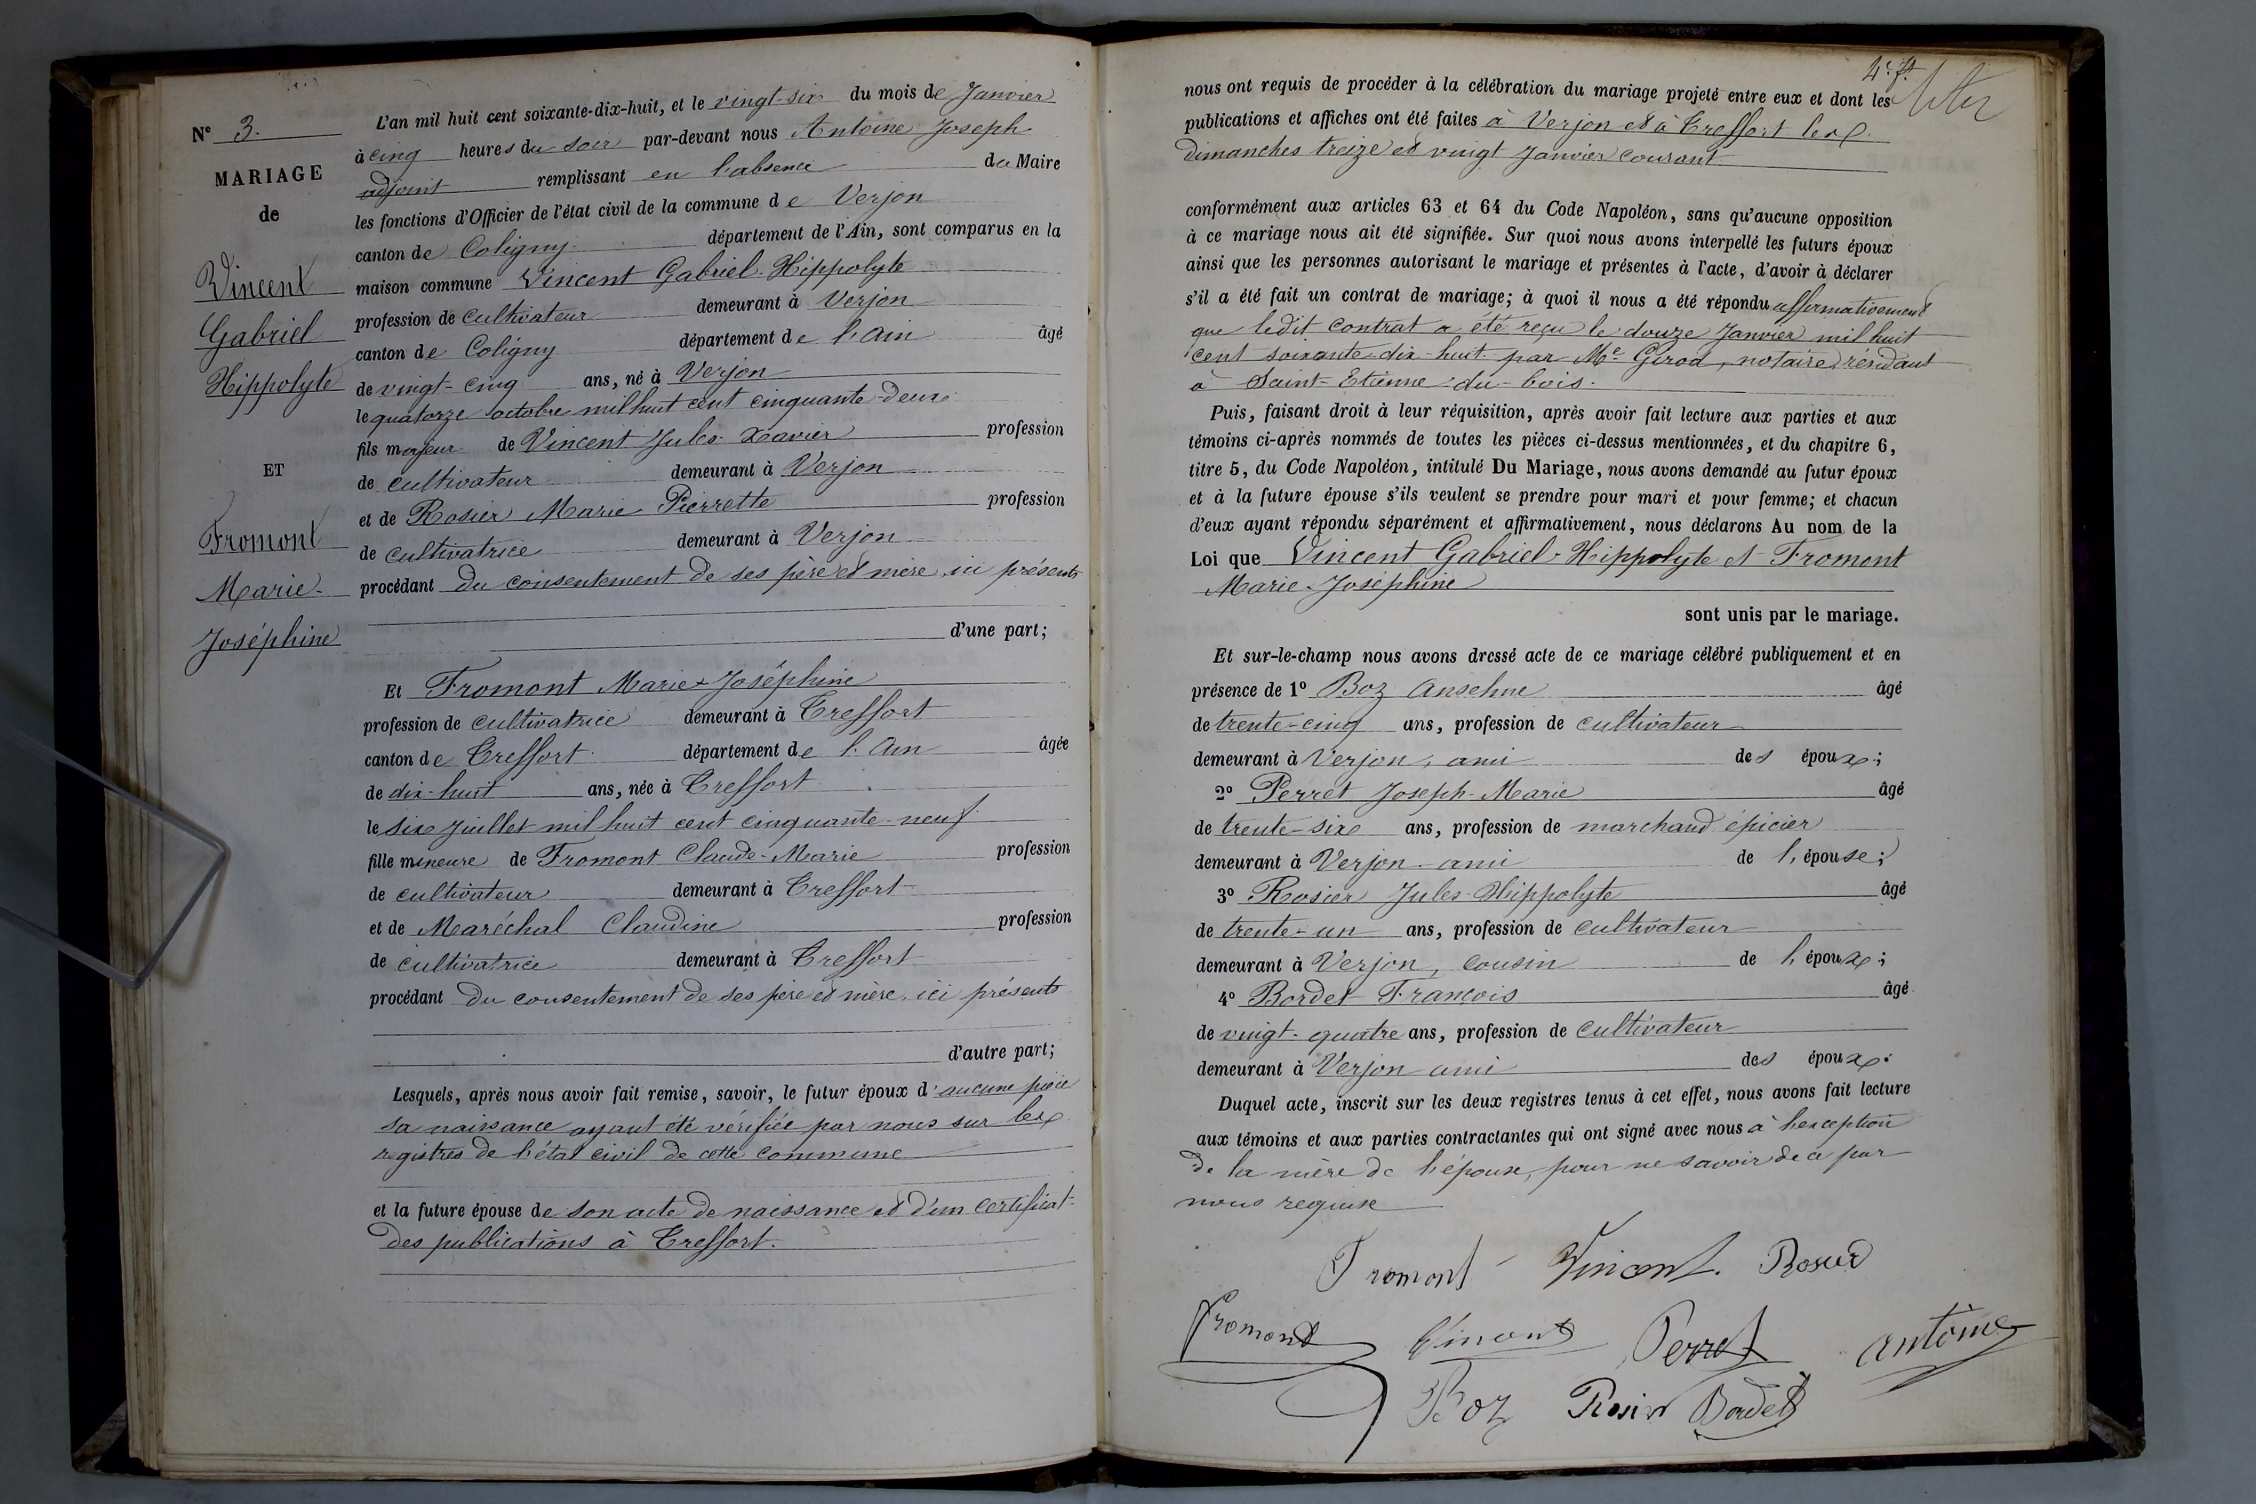 N° 3.
MARIAGE
de
Vincent
Gabriel
Hippolyte
ET
Fromont
Marie-
Joséphine
L'an mil huit cent soixante-dix-huit, et le vingt-six du mois de Janvier
à cinq heures du soir par-devant nous Antoine Joseph
adjoint remplissant en l'absence du Maire
les fonctions d'Officier de l'état civil de la commune de Verjon
canton de Coligny. département de l'Ain, sont comparus en la
maison commune Vincent Gabriel-Hippolyte
profession de cultivateur demeurant à Verjon
canton de Coligny département de l'Ain âgé
de vingt-cinq ans, né à Verjon
le quatorze octobre mil huit cent cinquante-deux
fils majeur de Vincent Jules Xavier profession
de cultivateur demeurant à Verjon
et de Rosier Marie Pierrette profession
de cultivatrice demeurant à Verjon
procédant du consentement de ses père et mère ici présents
d'une part;
Et Fromont Marie-Joséphine
profession de cultivatrice demeurant à Treffort
canton de Treffort département de l'Ain âgée
de dix-huit ans, née à Treffort
le six Juillet mil huit cent cinquante-neuf
fille mineure de Fromont Claude-Marie profession
de cultivateur demeurant à Treffort
et de Maréchal Claudine profession
de cultivatrice demeurant à Treffort
procédant du consentement de ses père et mère ici présents
d'autre part;
Lesquels, après nous avoir fait remise, savoir, le futur époux d'aucune pièce
sa naissance ayant été vérifiée par nous sur les
registres de l'état civil de cette commune
et la future épouse de son acte de naissance et d'un certificat
des publications à Treffort.
4e ft.
nous ont requis de procéder à la célébration du mariage projeté entre eux et dont les
publications et affiches ont été faites à Verjon et à Treffort les
dimanches treize et vingt Janvier courant
conformément aux articles 63 et 64 du Code Napoléon, sans qu'aucune opposition
à ce mariage nous ait été signifiée. Sur quoi nous avons interpellé les futurs époux
ainsi que les personnes autorisant le mariage et présentes à l'acte, d'avoir à déclarer
s'il a été fait un contrat de mariage; à quoi il nous a été répondu affirmativement
que ledit contrat a été reçu le douze Janvier mil huit
cent soixante-dix-huit par Me Girod, notaire résidant
à Saint-Etienne-du-bois.
Puis, faisant droit à leur réquisition, après avoir fait lecture aux parties et aux
témoins ci-après nommés de toutes les pièces ci-dessus mentionnées, et du chapitre 6,
titre 5, du Code Napoléon, intitulé Du Mariage, nous avons demandé au futur époux
et à la future épouse s'ils veulent se prendre pour mari et pour femme; et chacun
d'eux ayant répondu séparément et affirmativement, nous déclarons Au nom de la
Loi que Vincent Gabriel-Hippolyte et Fromont
Marie-Joséphine
sont unis par le mariage.
Et sur-le-champ nous avons dressé acte de ce mariage célébré publiquement et en
présence de 1° Boz Anselme âgé
de trente-cinq ans, profession de cultivateur
demeurant à Verjon, ami des époux;
2° Perret Joseph-Marie âgé
de trente-six ans, profession de marchand épicier
demeurant à Verjon ami de l'épouse;
3° Rosier Jules-Hippolyte âgé
de trente-un ans, profession de cultivateur
demeurant à Verjon, cousin de l'époux;
4° Bordet François âgé
de vingt-quatre ans, profession de cultivateur
demeurant à Verjon ami des époux.
Duquel acte, inscrit sur les deux registres tenus à cet effet, nous avons fait lecture
aux témoins et aux parties contractantes qui ont signé avec nous à l'exception
de la mère de l'épouse, pour ne savoir de ce par
nous requise
Fromont Vincent. Rosier
Fromont Vincent Perret Antoine
Boz Rosier Bordet